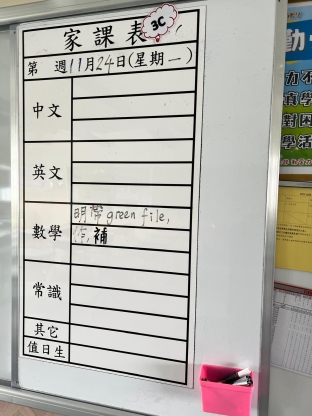 家課表
3C
第 週11月24日(星期一)
中文
英文
數學
明帶green file,
作,補
常識
其它
值日生